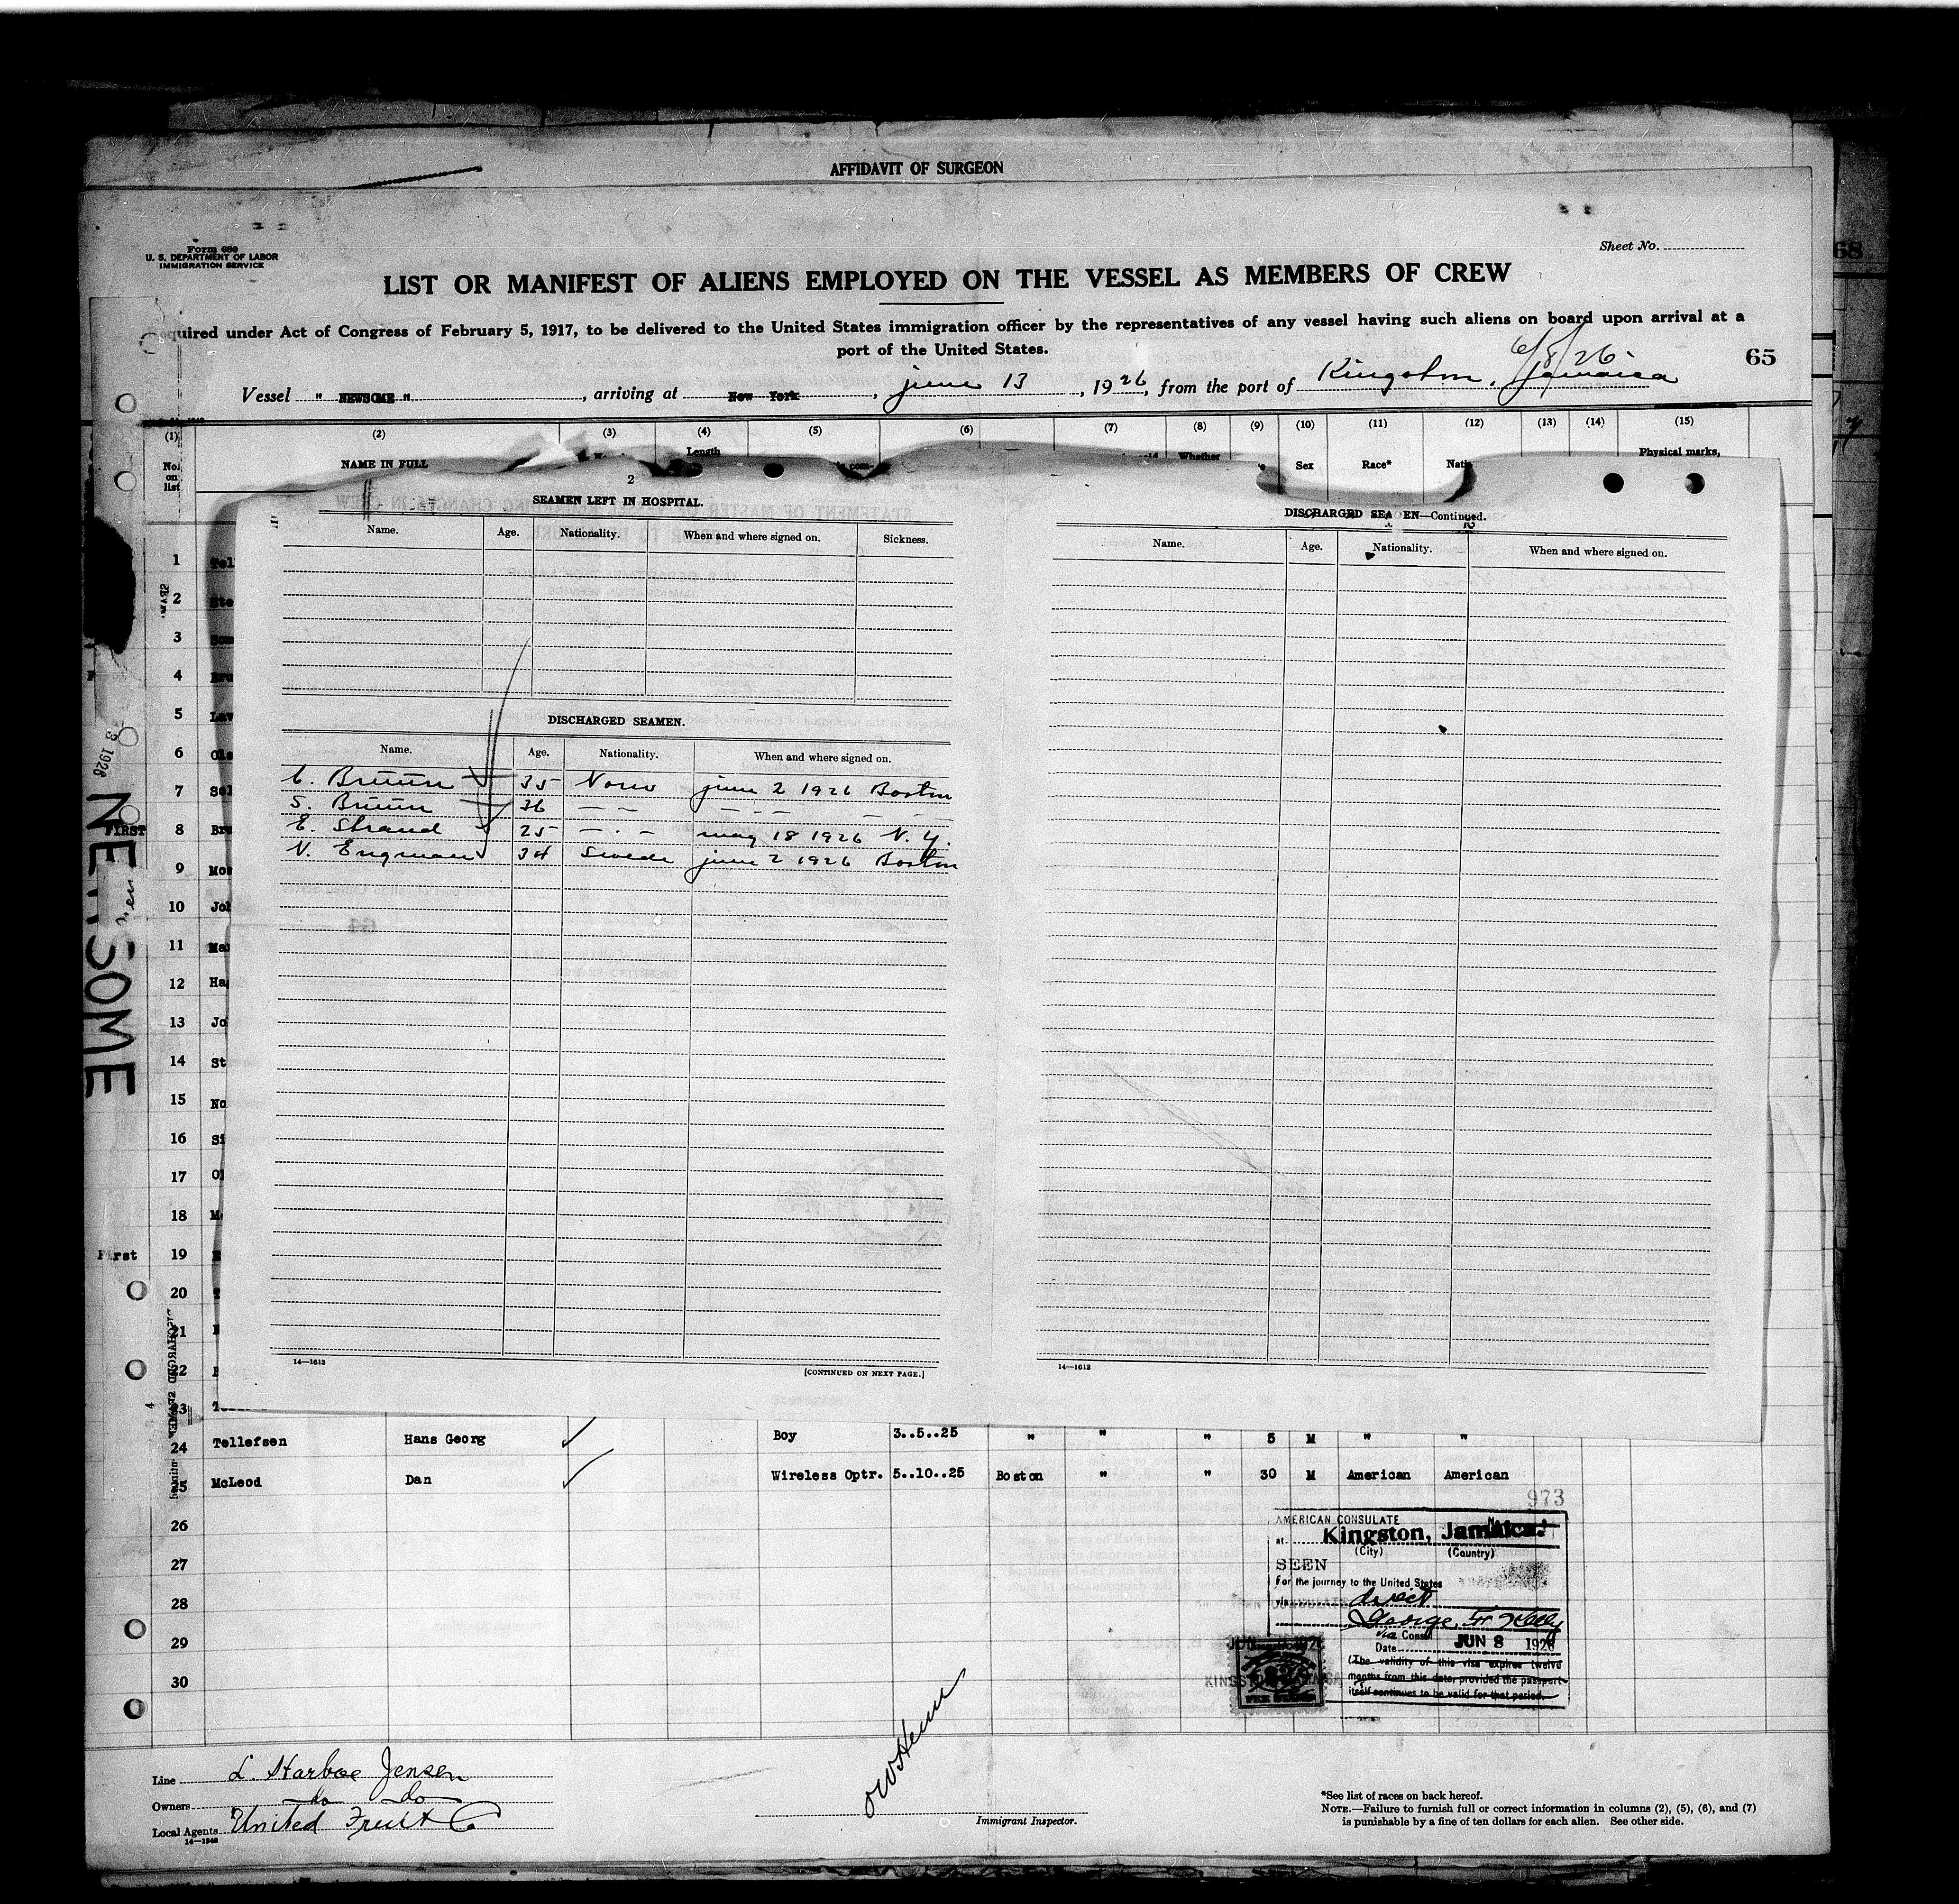 AFFIDAVIT OF SURGEON
Form 680
U. S. DEPARTMENT OF LABOR
IMMIGRATION SERVICE
Sheet No.
68
LIST OR MANIFEST OF ALIENS EMPLOYED ON THE VESSEL AS MEMBERS OF CREW
quired under Act of Congress of February 5, 1917, to be delivered to the United States immigration officer by the representatives of any vessel having such aliens on board upon arrival at a
port of the United States.
6/8/26
65
Vessel " NEWSOME " , arriving at New York , june 13 , 1926, from the port of Kingston, Jamaica
(1) (2) (3) (4) (5) (6) (7) (8) (9) (10) (11) (12) (13) (14) (15)
No. on list NAME IN FULL Length Whether Sex Race* Physical marks,
2
SEAMEN LEFT IN HOSPITAL.
Name. Age. Nationality. When and where signed on. Sickness.
DISCHARGED SEAMEN.
Name. Age. Nationality. When and where signed on.
C. Bruun 35 Norw june 2 1926 Boston
S. Bruun 36 — — — — —
E. Strand 25 — · — may 18 1926 N. Y.
N. Engman 34 Swede june 2 1926 Boston
14—1613
[CONTINUED ON NEXT PAGE.]
DISCHARGED SEA EN—Continued.
Name. Age. Nationality. When and where signed on.
14—1613
1 Tel
2 Ste
3
4
5
6
7
FIRST 8
9
10
11
12
13 Jo
14 St
15 No
16 Si
17 Ol
18
First 19
20
21
22
23
24 Tellefsen Hans Georg Boy 3..5..25 " " " 5 M " "
25 McLeod Dan Wireless Optr. 5..10..25 Boston " " 30 M American American
26
27
28
29
30
973
AMERICAN CONSULATE
at Kingston, Jamaica.
(City) (Country)
SEEN
For the journey to the United States
via direct
Consul
Date JUN 8 1926
(The validity of this visa expires twelve
months from this date, provided the passport
itself continues to be valid for that period.
Line L. Harboe Jensen
Owners do do
Local Agents United Fruit Co
14—1240
Immigrant Inspector.
*See list of races on back hereof.
NOTE.—Failure to furnish full or correct information in columns (2), (5), (6), and (7)
is punishable by a fine of ten dollars for each alien. See other side.